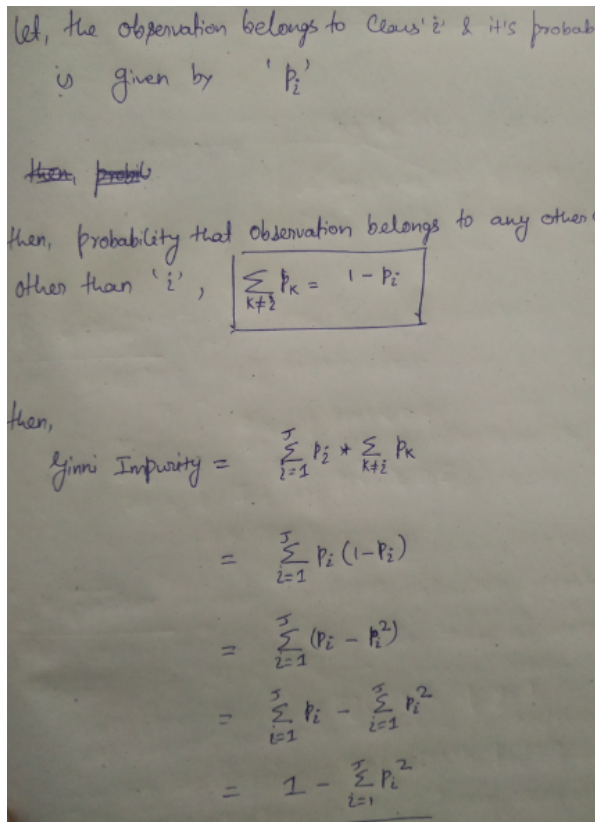 let, the observation belongs to Class 'i' & it's probab
is given by 'pi'
then, probabil
then, probability that observation belongs to any other
other than 'i', ∑k≠i pk = 1 - pi
then,
Ginni Impurity = ∑i=1^J pi * ∑k≠i pk
= ∑i=1^J pi (1-pi)
= ∑i=1^J (pi - pi²)
= ∑i=1^J pi - ∑i=1^J pi²
= 1 - ∑i=1^J pi²